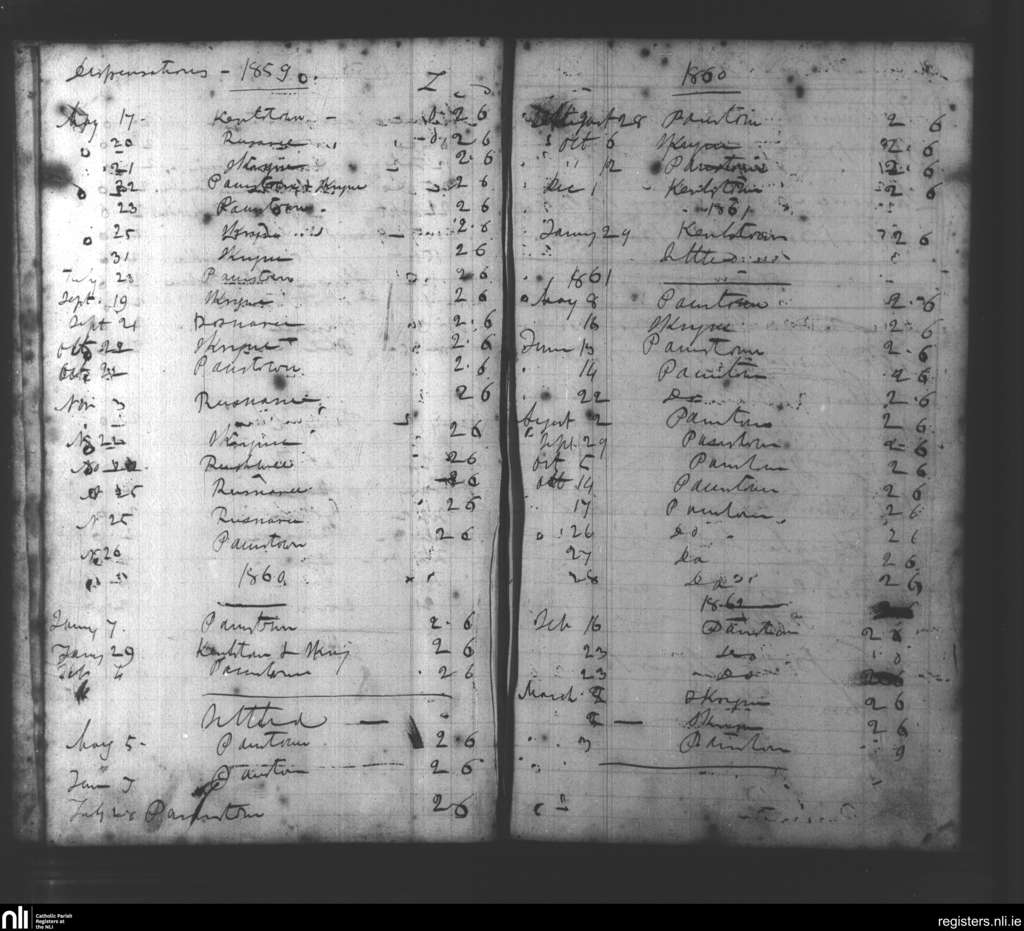 Dispensations - 1859.
May 17. Kentstown - 2 6
20 Rusnaree 2 6
21 Skryne 2 6
22 Painstown & Skryne 2 6
23 Painstown 2 6
25 2 6
31 Skryne 2 6
July 23 Painstown 2 6
Sept. 19 Skryne 2 6
Sept 21 Rosnaree 2 6
Oct 22 Skryne 2 6
Oct Painstown 2 6
Nov 3 Rusnaree 2 6
N 22 Skryne 2 6
2 6
N 25 Rusnaree 2 6
N 25 Rusnaree 2 6
N 26 Painstown 2 6
1860.
Janry 7. Painstown 2 6
Janry 29 Kentstown & 2 6
Feb Painstown 2 6
Settled
May 5 - Painstown 2 6
June 7 Painstown 2 6
July Painstown 2 6
1860
August 28 Painstown 2 6
Oct 6 Skryne 2 6
12 Painstown 2 6
Dec 1 Kentstown 2 6
1861
Janry 29 Kentstown 2 6
Settled
1861
May 8 Painstown 2 6
16 Skryne 2 6
June 13 Painstown 2 6
14 Painstown 2 6
22 Do 2 6
August 2 Painstown 2 6
Sept. 29 Painstown 2 6
Oct 5 Painstown 2 6
Oct 14 Painstown 2 6
17 Painstown 2 6
26 Do 2 6
27 Do 2 6
28 Do 2 6
1862
Feb 16 Painstown 2 6
23 Do
23 Do 2 6
March 2 Skryne 2 6
2 Skryne 2 6
3 Painstown
nli
Catholic Parish
Registers at
the NLI
registers.nli.ie